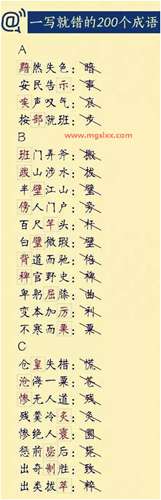 @ 一写就错的200个成语
A
黯然失色：暗
安民告示：事
哀声叹气：哀
按部就班：步
www.mgslxx.com
B
班门弄斧：搬
跋山涉水：拔
半壁江山：璧
傍人门户：旁
百尺竿头：杆
白璧微瑕：壁
背道而驰：弛
稗官野史：裨
卑躬屈膝：曲
变本加厉：利
不寒而栗：粟
C
仓皇失措：慌
沧海一粟：苍
惨无人道：残
残羹冷炙：灸
惨绝人寰：圜
惩前毖后：
出奇制胜：致
出类拔萃：粹